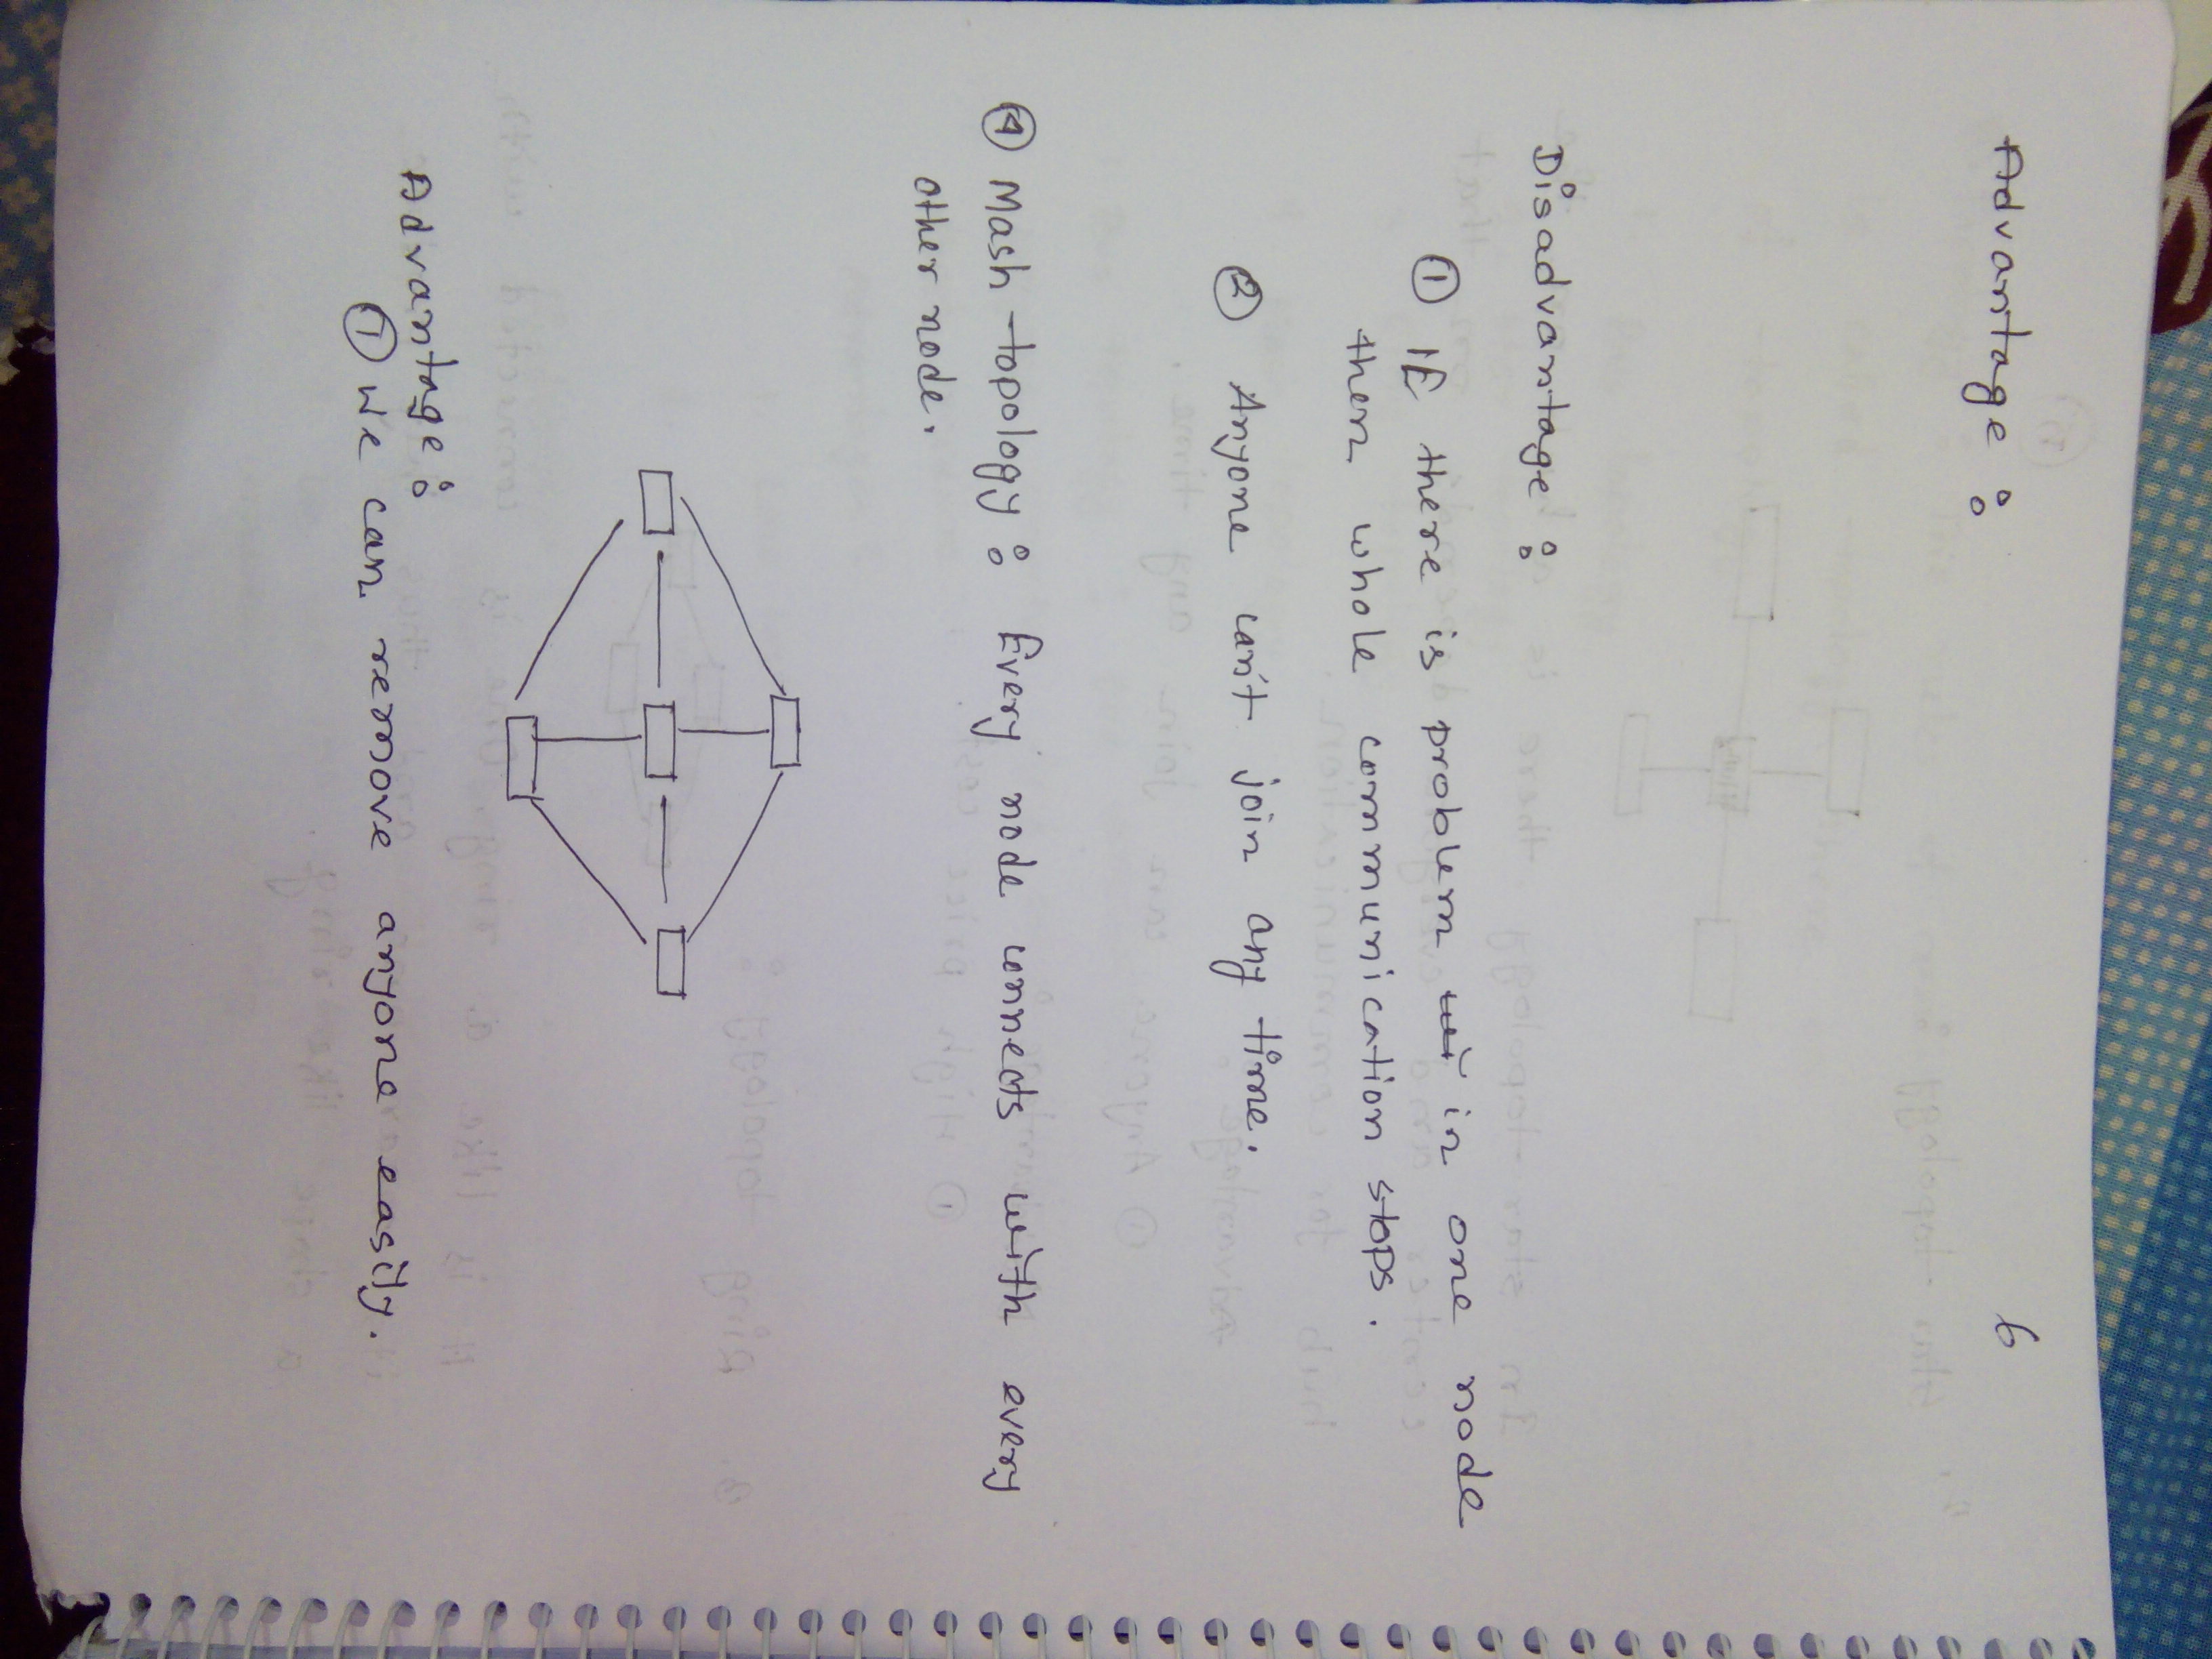 6
Advantage :
Disadvantage :
① If there is problem in one node
then whole communication stops.
② Anyone can't join any time.
④ Mash topology : Every node connects with every
other node.
Advantage :
① We can remove anyone easily.